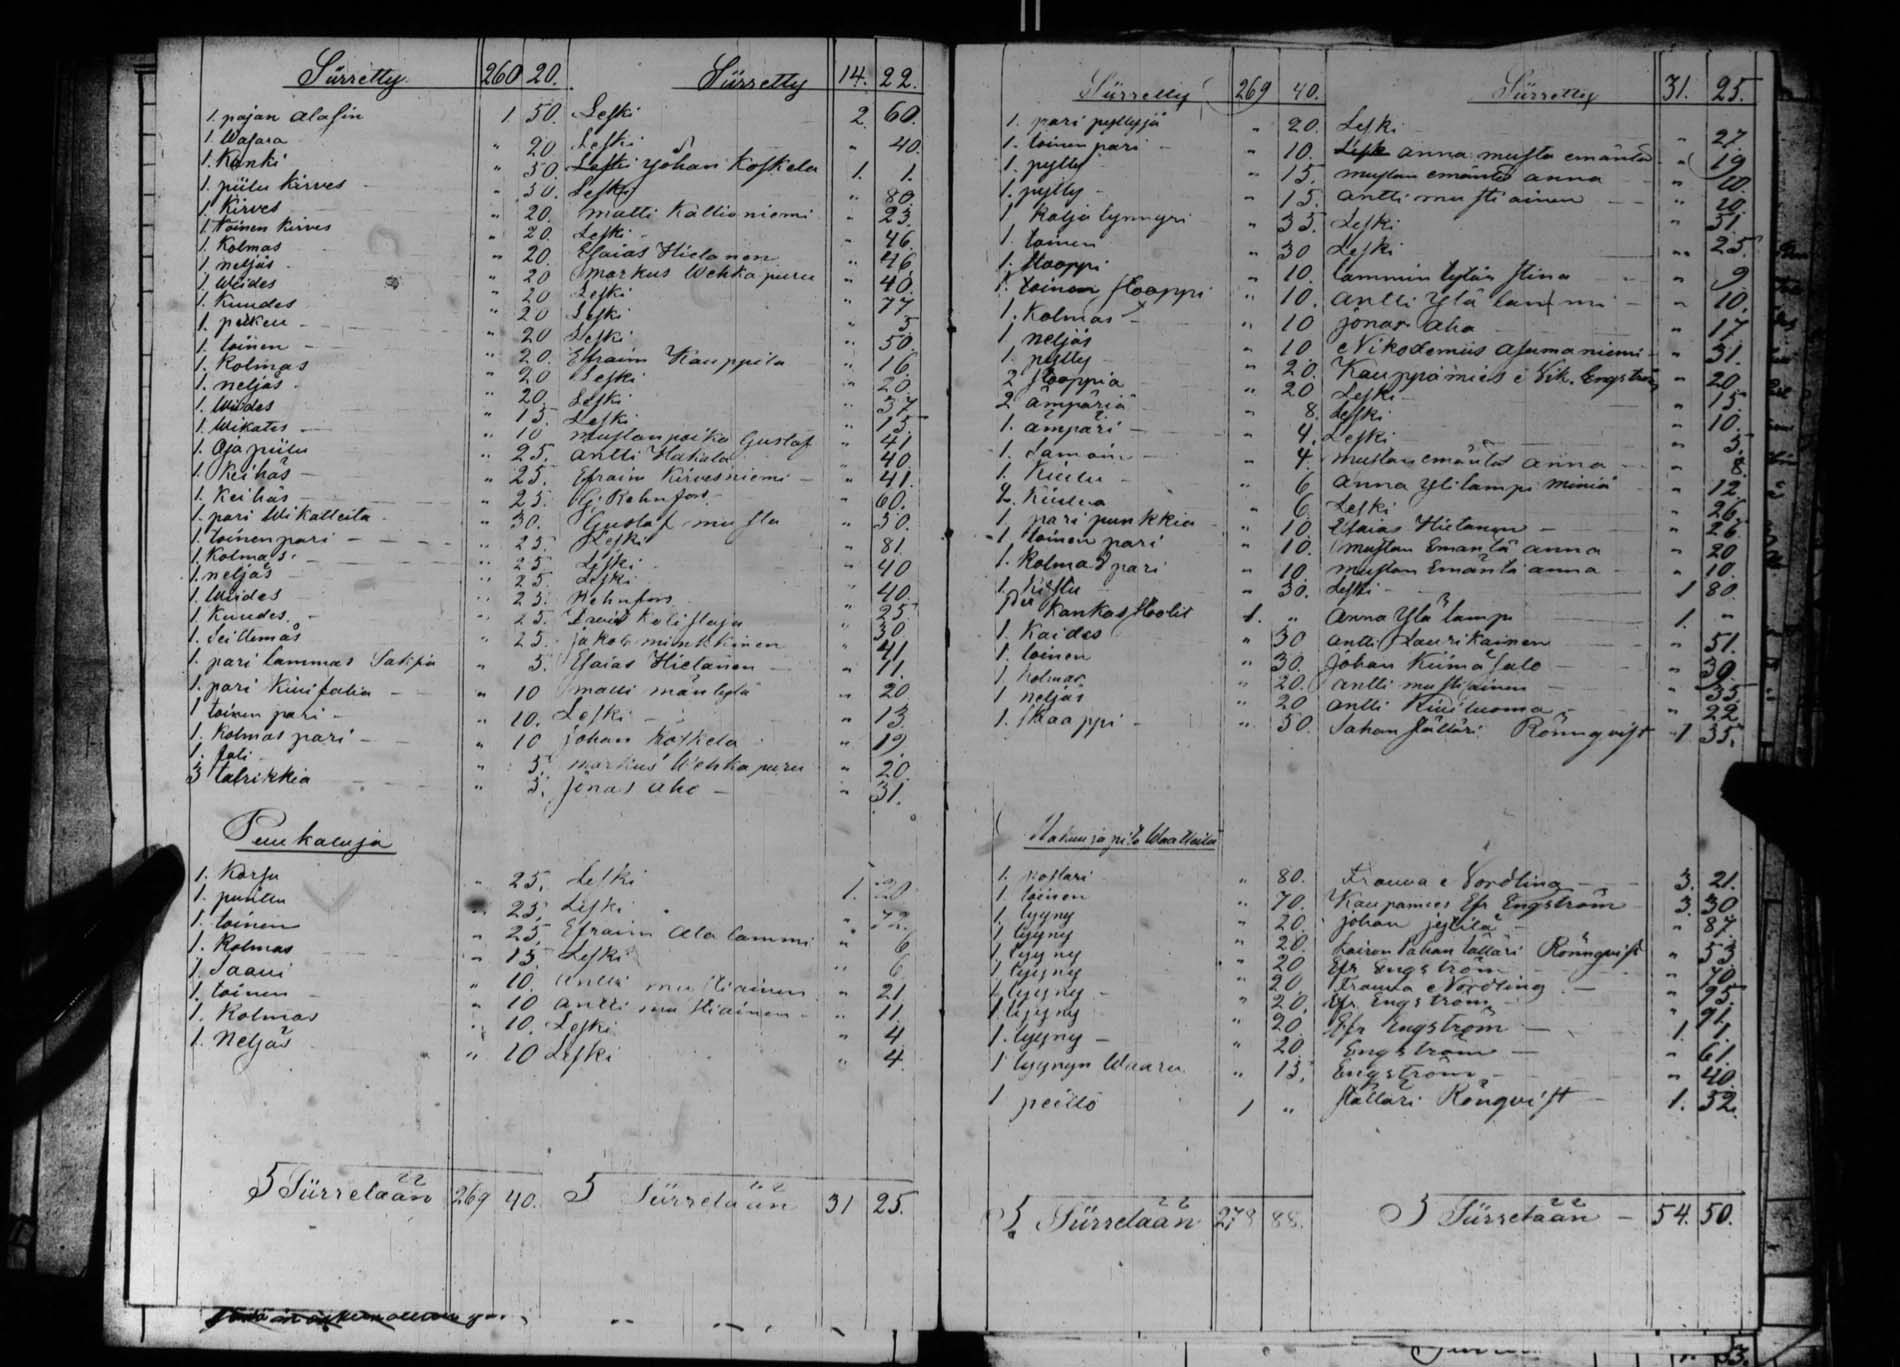 Siirretty 260 20. Siirretty 14. 22.
1. pajan alasin 1 50. Leski 2. 60.
1. Wasara " 20 Leski " 40.
1. Kanki " 50. Leski Johan Koskela 1. 1.
1. piilu kirves " 30. Leski " 80.
1. Kirves " 20. Matti Kallioniemi " 23.
1. toinen kirves " 20. Leski " 46.
1. Kolmas " 20. Esaias Hietanen " 46.
1. neljäs " 20 Markus Wehkapuru " 40.
1. Wiides " 20 Leski " 77
1. Kuudes " 20 Leski " 5.
1. " 20 Leski " 50.
1. toinen " 20. Efraim Kauppila " 16.
1. Kolmas " 20 Leski " 20.
1. neljäs " 20. Leski " 37
1. Wiides " 15. Leski " 15.
1. Wikates " 10 Mustanpoika Gustaf " 41
1. Oja piilu " 25. Antti Hakala " 40.
1. Keihäs " 25. Efraim Kirvesniemi " 41.
1. Keihäs " 25. Rehnfors " 60.
1. pari Wikatteita " 30. Gustaf Musta " 50.
1. toinen pari " 25. Leski " 81.
1. Kolmas " 25 Leski " 40
1. neljäs " 25. Leski " 40.
1. Wiides " 25. Rehnfors " 25.
1. Kuudes " 25. David " 30.
1. Seitsemäs " 25. Jakob Minkkinen " 41.
1. pari lammas Saksia " 5. Esaias Hietanen " 11.
1. pari " 10 Matti Mäntylä " 20
1 toinen pari " 10. Leski " 13.
1. Kolmas pari " 10 Johan Koskela " 19.
1. " 5. Markus Wehkapuru " 20.
3 talrikkia " 5. Jonas Aho " 31.
Puukaluja
1. Korsu " 25. Leski 1.
1. puntu " 25. Leski " 72.
1. toinen " 25. Efraim Ala lammi " 6
1. Kolmas " 15. Leski " 6
1. Saavi " 10. Antti Mustiainen " 21
1. toinen " 10 Antti Mustiainen " 11.
1. Kolmas " 10. Leski " 4
1. Neljäs " 10 Leski " 4.
Siirretään 269 40. Siirretään 31 25.
Siirretty 269 40. Siirretty 31. 25.
1. pari pyttyjä " 20. Leski " 27.
1. toinen pari " 10. Anna Musta emäntä " 19
1. pytty " 15. Mustan emäntä Anna " 10.
1. pytty " 15. Antti Mustiainen " 20.
1 kalja tynnyri " 35. Leski " 51.
1. toinen " 30 Leski " 25.
1. Stooppi " 10. lammin tytär Stina " 9
1. toinen stooppi " 10. Antti Ylä lammi " 10.
1. Kolmas " 10 Jonas Aho " 17
1. neljäs " 10 Nikodemus Asumaniemi " 31.
1. pytty " 20. Kauppamies Engström " 20.
2 stooppia " 20 Leski " 15.
2 ämpäriä " 8. Leski " 10.
1. ämpäri " 4. Leski " 5.
1. Samoin " 4. Mustan emäntä Anna " 8.
1. Kiulu " 6 Anna Ylilampi miniä " 12
2. Kiulua " 6. Leski " 26.
1 pari punkkia " 10. Esaias Hietanen " 26.
1. toinen pari " 10. Mustan Emäntä Anna " 20
1. Kolmas pari " 10. Mustan Emäntä Anna " 10.
1. " 30. Leski 1 80.
Kankastoolit 1. " Anna Ylä lampi 1. "
1. Kaides " 30 Antti Laurikainen " 51.
1. toinen " 30. Johan Kiimasalo " 30.
1 kolmas " 20. Antti Mustiainen " 35.
1 neljäs " 20 Antti Kiviluoma " 22
1. Skaappi " 50. Sahan Rönnqvist 1 35.
Makuu ja pito Waatteita
1. " 80. Frouva Nordling 3. 21.
1. toinen " 70. Kaupamies Efr Engström 3. 30
1 tyyny " 20. Johan " 87.
1 tyyny " 20. Rönnqvist " 53
1. tyyny " 20 Efr Engström " 70.
1. tyyny " 20. Frouva Nordling " 95.
1. tyyny " 20. Efr. Engström " 91.
1. tyyny " 20. Efr Engström 1. 1.
1. tyyny " 20 Engström " 61.
1 tyynyn Waaru " 15. Engström " 40.
1 peitto 1 " Rönqvist 1. 52.
Siirretään 278 88. Siirretään 54. 50.